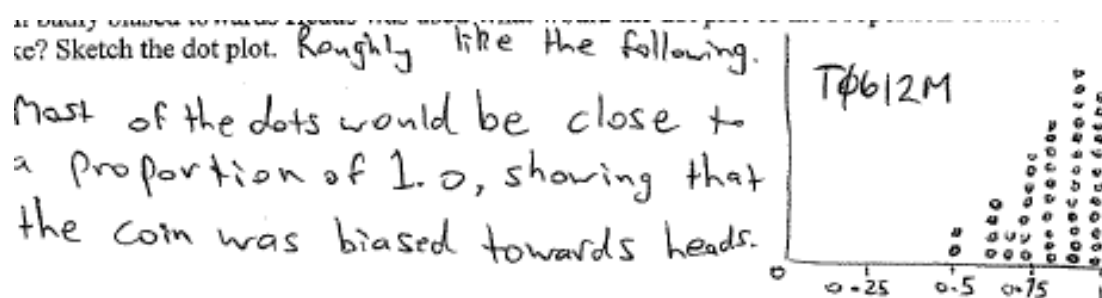 ce? Sketch the dot plot. Roughly like the following.
Most of the dots would be close to
a proportion of 1.0, showing that
the coin was biased towards heads.
TØ612M
0 0.25 0.5 0.75 1